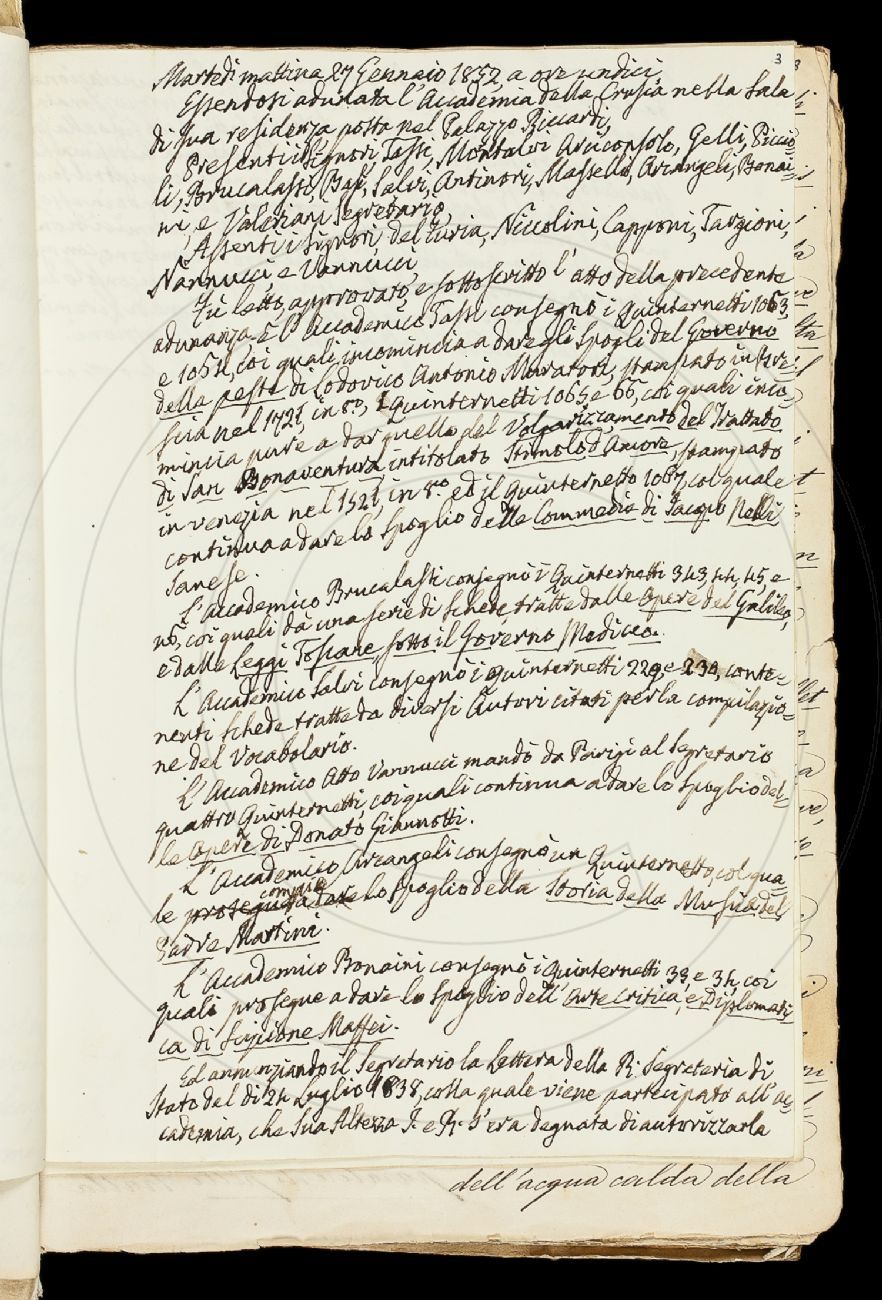 3
Martedì mattina 27 Gennaio 1852, a ore undici,
Essendosi adunata l'Accademia della Crusca nella Sala
di sua residenza posta nel Palazzo Riccardi,
Presenti i Signori Tassi, Montalvi Arciconsolo, Gelli, Piccio=
li, Brucalassi, Basi, Salvi, Antinori, Masselli, Arcangeli, Bonai=
ni, e Valeriani Segretario,
Assenti i Signori, del Furia, Niccolini, Capponi, Targioni,
Nannucci e Vannucci,
Fù letto, approvato, e sottoscritto l'atto della precedente
adunanza. E l'Accademico Tassi consegnò i Quinternetti 1063,
e 1064, coi quali incomincia a dare gli Spogli del Governo
della peste di Lodovico Antonio Muratori, stampato in Bre=
scia nel 1721, in 8.º, I Quinternetti 1065 e 66, coi quali inco=
mincia pure a dar quello del Volgarizzamento del Trattato
di San Bonaventura intitolato Stimolo d'Amore, stampato
in Venezia nel 1521, in 8.º ed il Quinternetto 1067, col quale
continua a dare lo Spoglio delle Commedie di Jacopo Nelli
Sanese.
L'Accademico Brucalassi consegnò i Quinternetti 343, 44, 45, e
46, coi quali dà una serie di Schede, tratte dalle Opere del Galileo,
e dalle Leggi Toscane, sotto il Governo Mediceo.
L'Accademico Salvi consegnò i Quinternetti 229, e 230, conte=
nenti Schede tratte da diversi Autori citati per la compilazio=
ne del Vocabolario.
L'Accademico Atto Vannucci mandò da Parigi al Segretario
quattro Quinternetti, coi quali continua a dare lo Spoglio del=
le Opere di Donato Giannotti.
L'Accademico Arcangeli consegnò un Quinternetto, col qua=
le prosegue a dare compie lo Spoglio della Storia della Musica del
Padre Martini.
L'Accademico Bonaini consegnò i Quinternetti 33, e 34, coi
quali prosegue a dare lo Spoglio dell'Arte Critica, e Diplomati=
ca di Scipione Maffei.
Ed annunziando il Segretario la Lettera della R. Segreteria di
Stato del dì 24 Luglio 1838, colla quale viene partecipato all'Ac=
cademia, che Sua Altezza I. e R. s'era degnata di autorizzarla
dell'acqua calda della